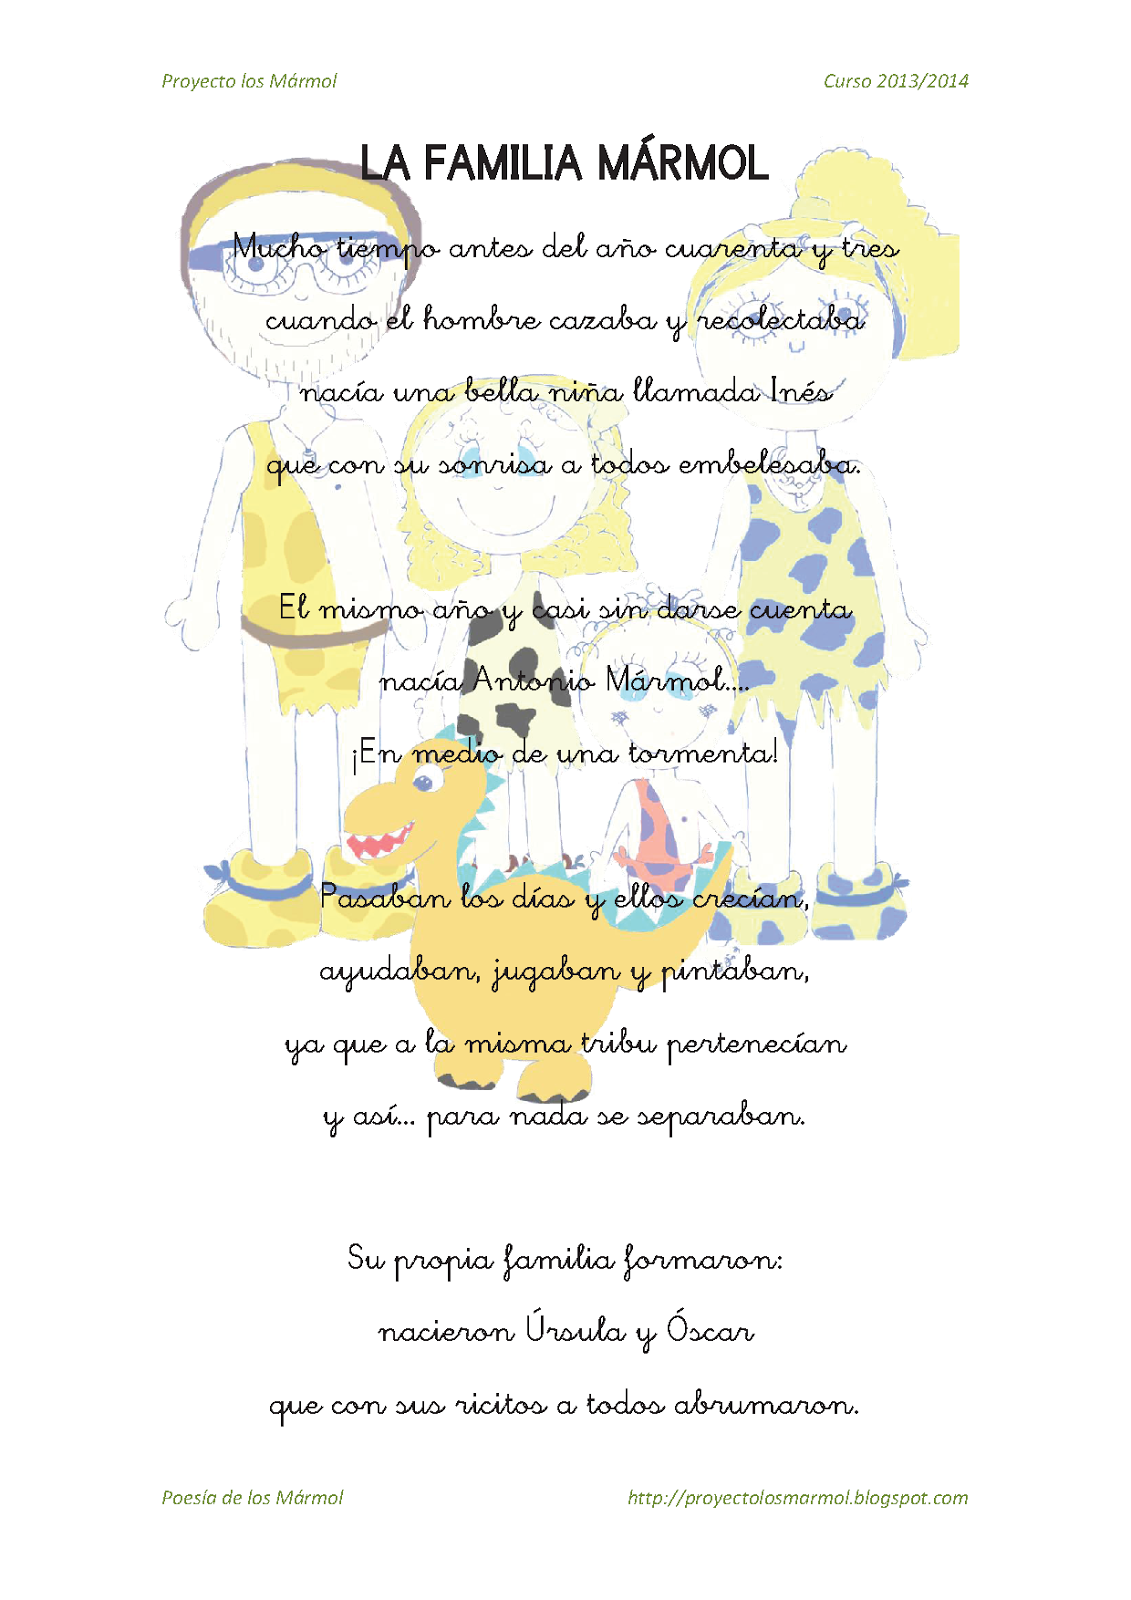 Proyecto los Mármol Curso 2013/2014
LA FAMILIA MÁRMOL
Mucho tiempo antes del año cuarenta y tres
cuando el hombre cazaba y recolectaba
nacía una bella niña llamada Inés
que con su sonrisa a todos embelesaba.
El mismo año y casi sin darse cuenta
nacía Antonio Mármol....
¡En medio de una tormenta!
Pasaban los días y ellos crecían,
ayudaban, jugaban y pintaban,
ya que a la misma tribu pertenecían
y así... para nada se separaban.
Su propia familia formaron:
nacieron Úrsula y Óscar
que con sus ricitos a todos abrumaron.
Poesía de los Mármol http://proyectolosmarmol.blogspot.com